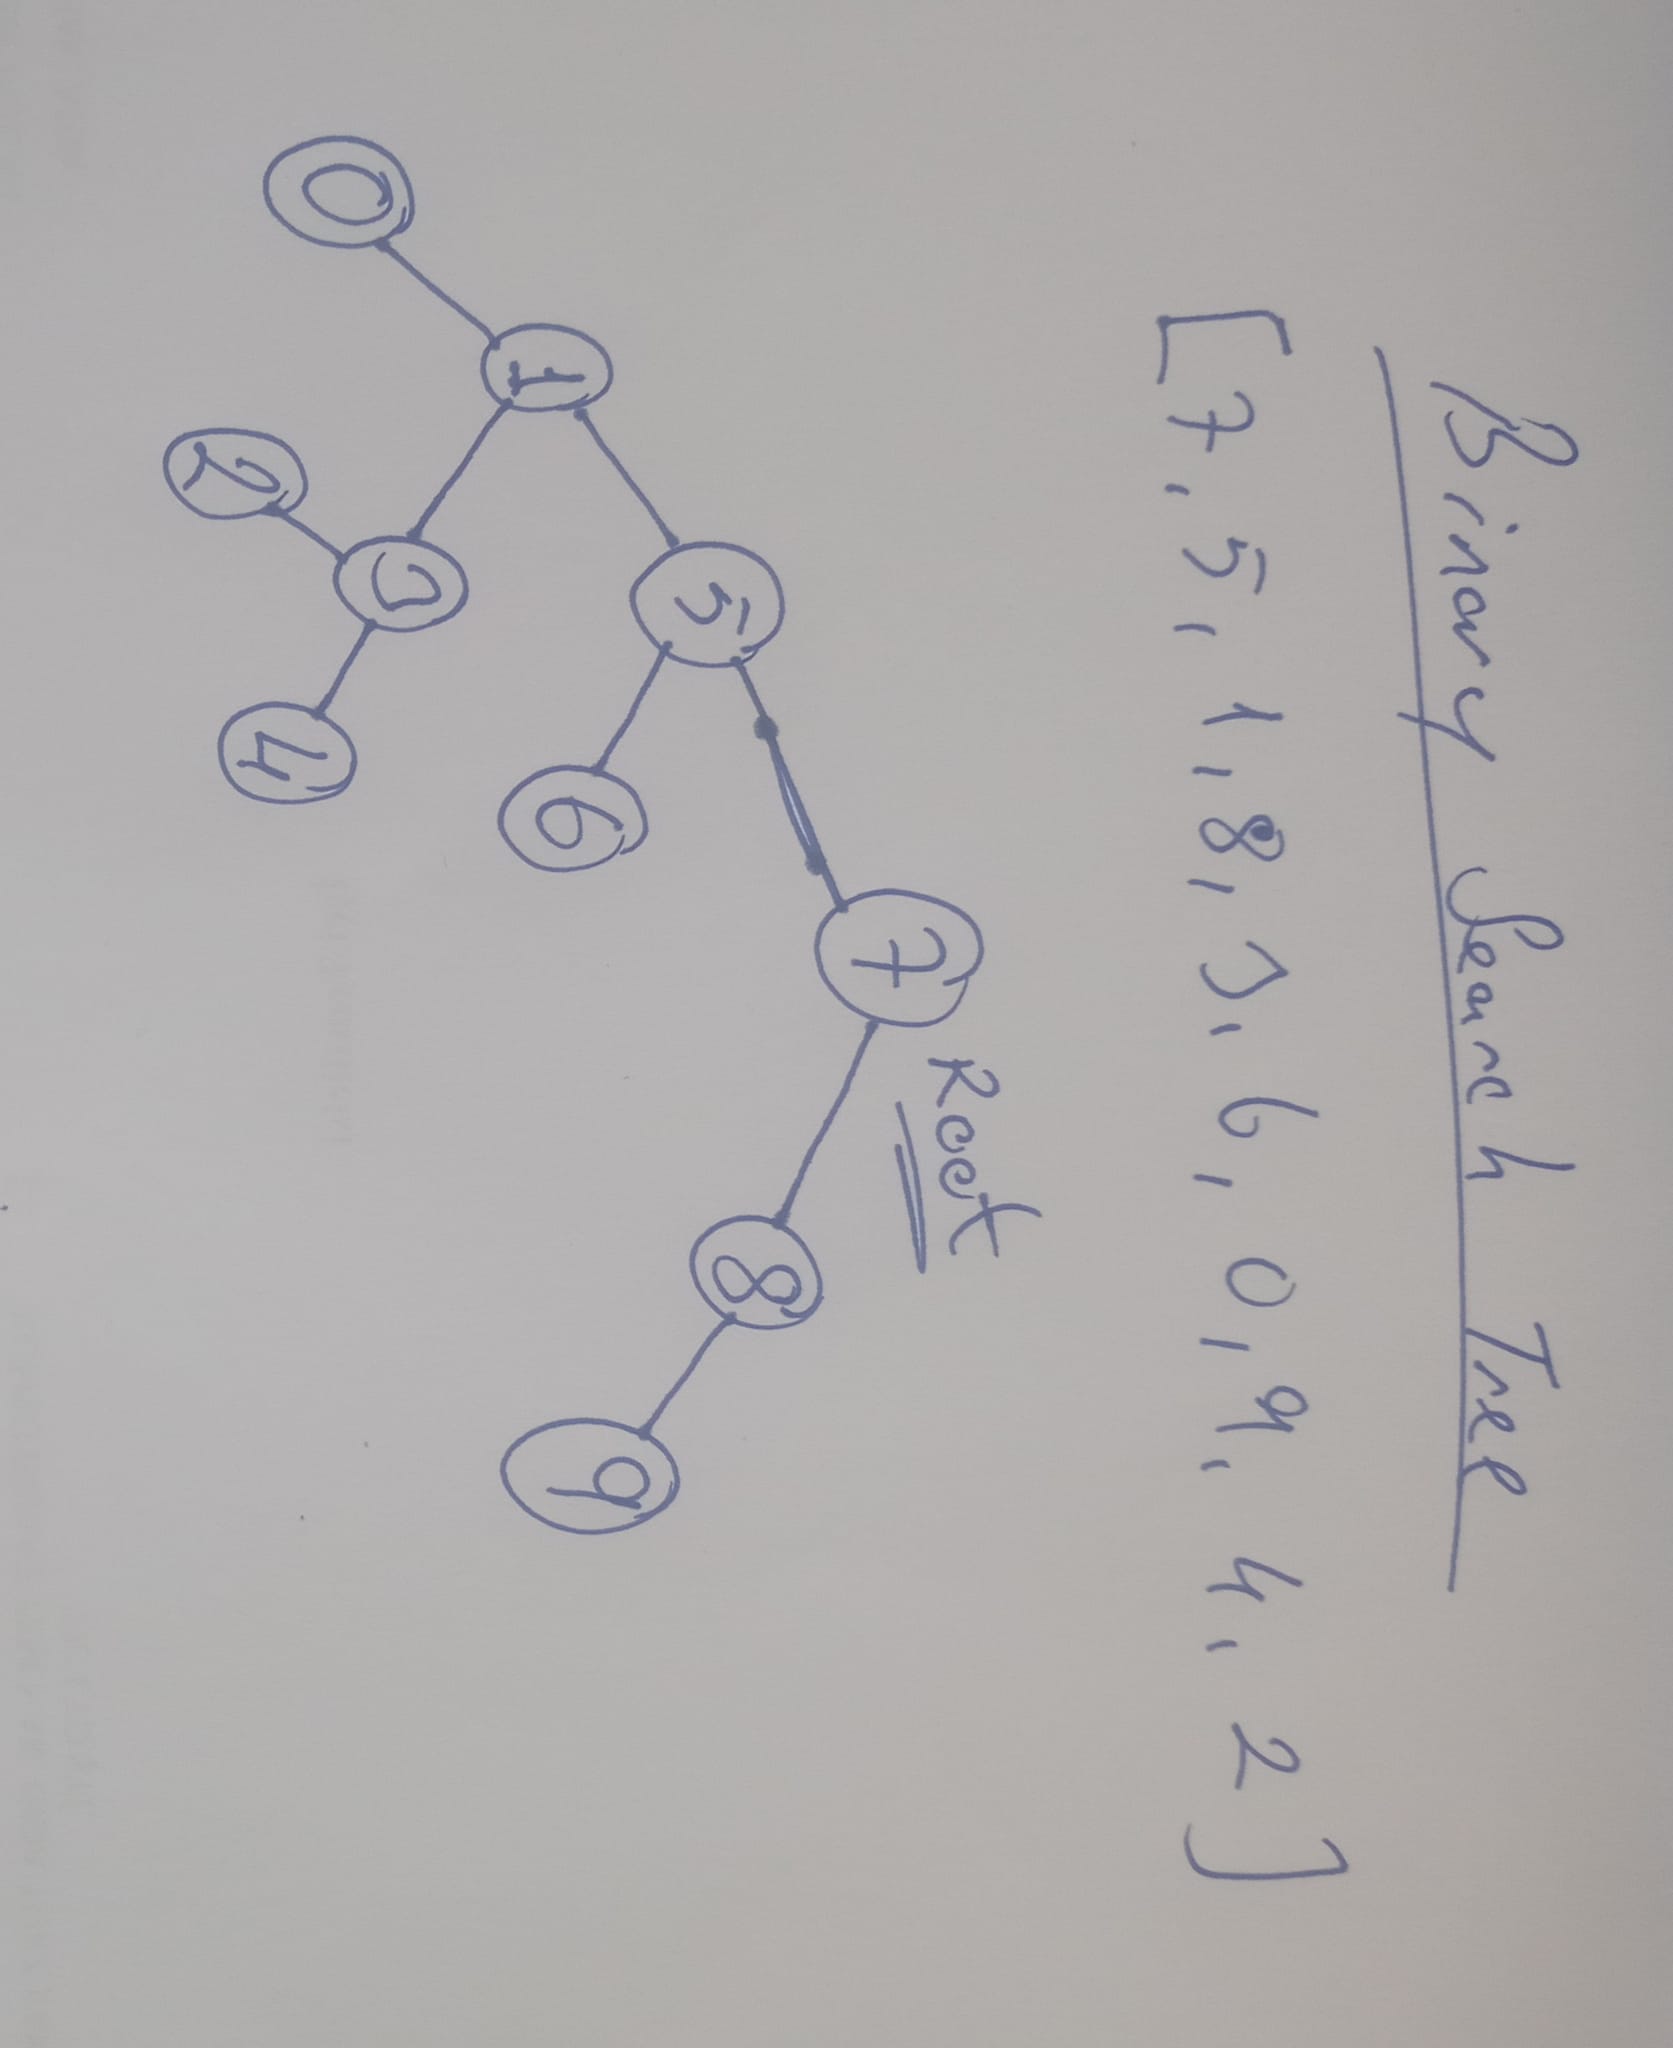 Binary Search Tree
[7, 5, 1, 8, 3, 6, 0, 9, 4, 2]
Root
7
8
5
9
6
1
3
0
4
2